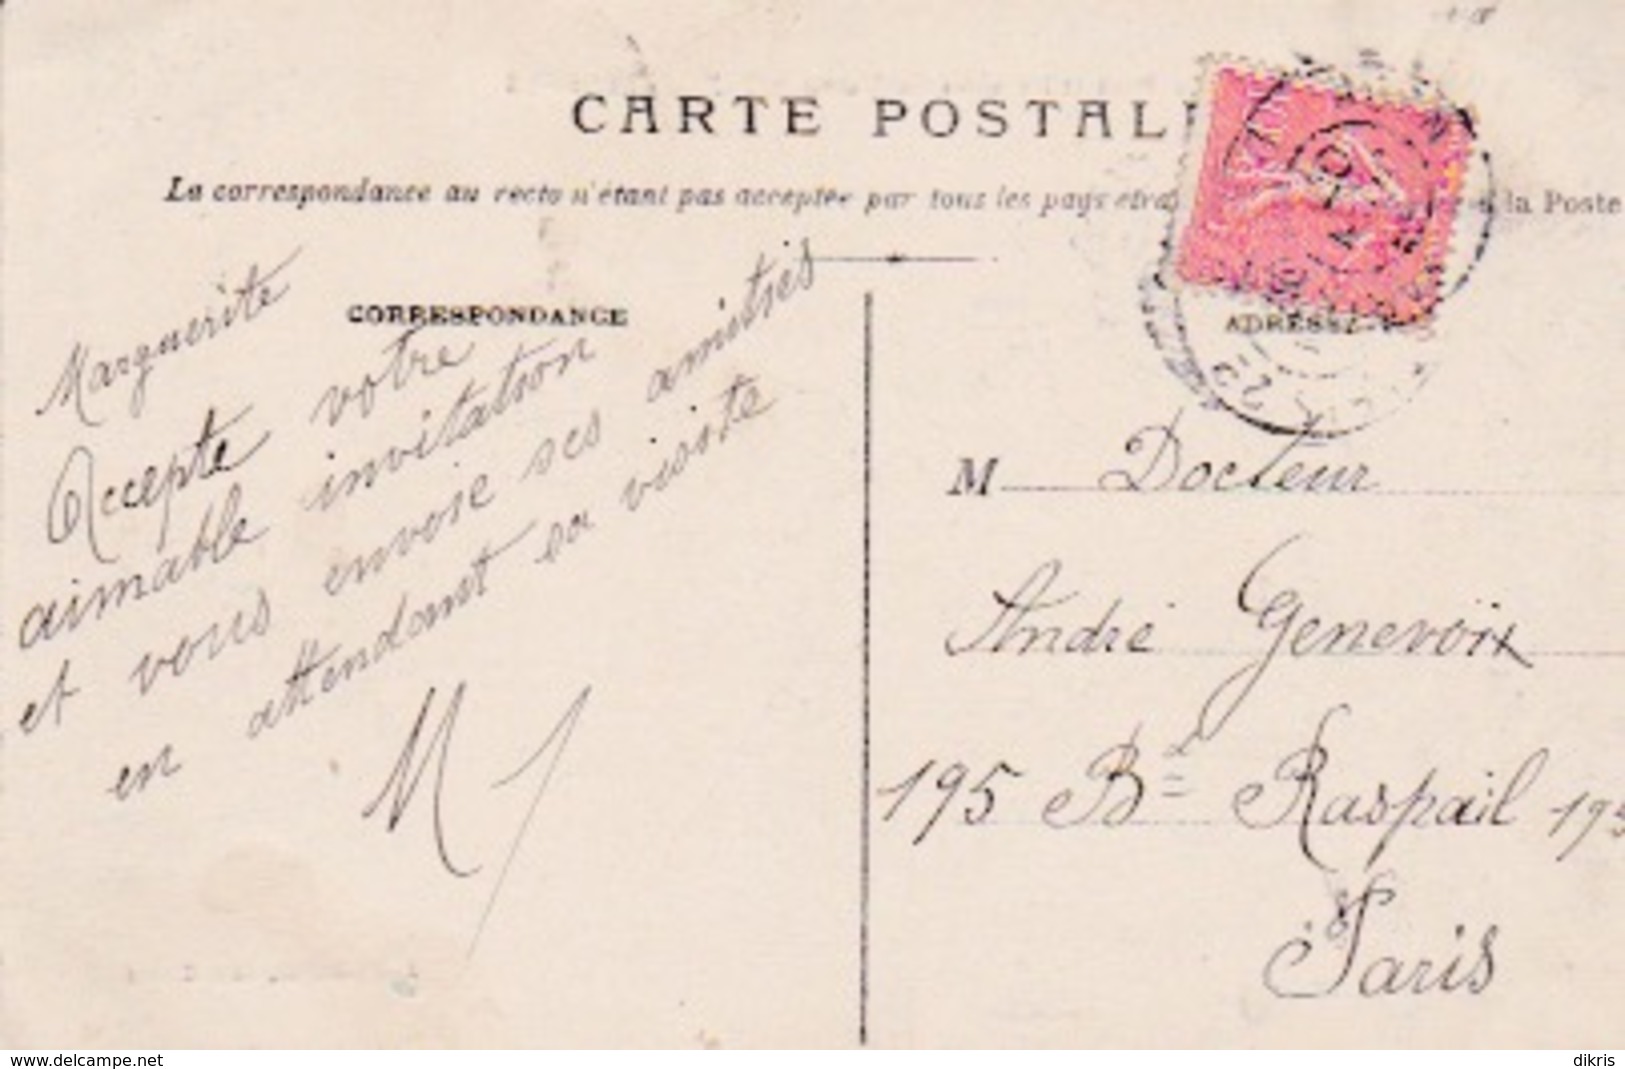 CARTE POSTAL
La correspondance au recto n'étant pas acceptée par tous les pays étra
la Poste
CORRESPONDANCE
ADRESSE
Marguerite
Accepte votre
aimable invitation
et vous envoie ses amitiés
en attendant sa visite
M
M Docteur
André Genevoix
195 Bd Raspail 195
Paris
www.delcampe.net
dikris